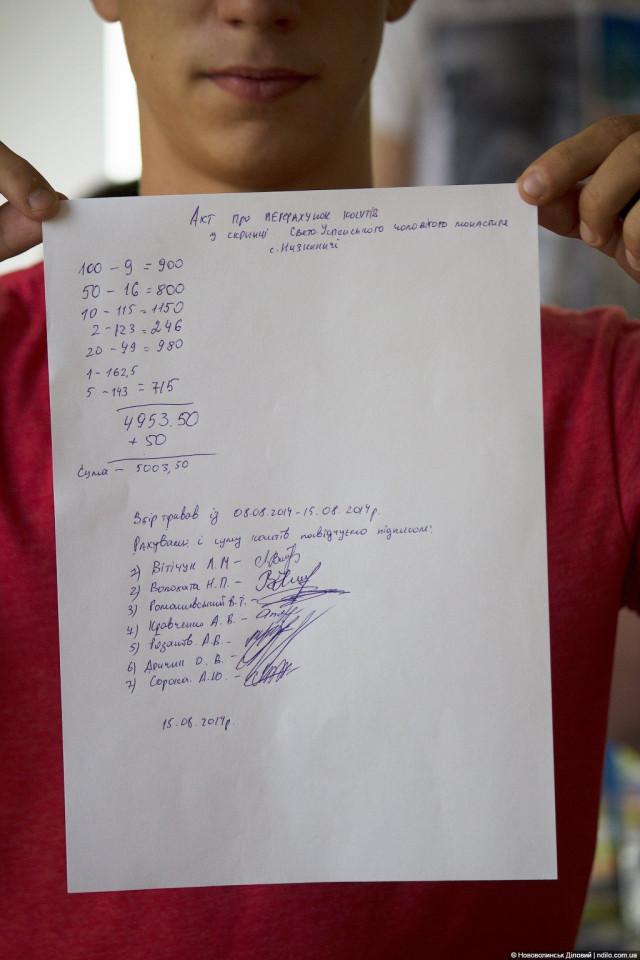 Акт про перерахунок коштів
у скринці Свято-Успенського чоловічого монастиря
с. Низкиничі
100 – 9 = 900
50 – 16 = 800
10 – 115 = 1150
2 – 123 = 246
20 – 49 = 980
1 – 162,5
5 – 143 = 715
4953.50
+ 50
Сума – 5003,50
Збір тривав із 08.08.2014 – 15.08.2014р.
Рахували і суму коштів посвідчуємо підписом:
1) Вітічук Л.М –
2) Волохата Н.П. –
3) Ромашевський В.Т. –
4) Кравченко А.В. –
5) А.В. –
6) О.В. –
7) Сорока А.Ю. –
15.08.2014р.
© Нововолинськ Діловий | ndilo.com.ua